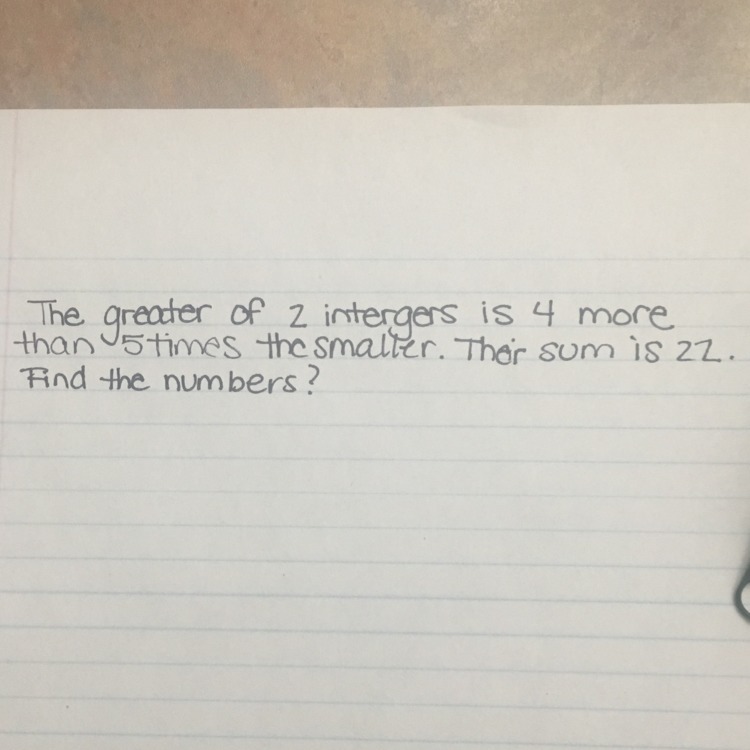 The greater of 2 intergers is 4 more
than 5 times the smaller. Their sum is 22.
Find the numbers?